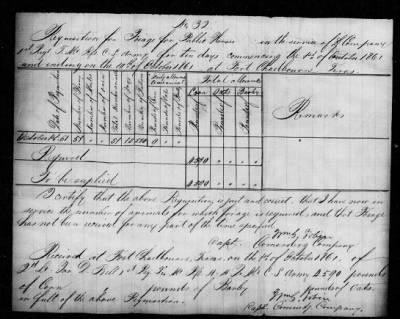 No 32
Requisition for Forage for Public Horses in the service of Company
1st Regt T. M. Rifs C. S. Army for ten days commencing the 1st of October 1861
and ending on the 10th of October 1861 at Fort Chadbourne Texas.
Date of Requisition
Number of Horses
Number of Mules
Number of Oxen
Total Number of
Number of days
Daily allowance
to each animal
Total allowance
Corn
Oats
Remarks
October 1st 61 51 " " 51 10 9
Required 4590 " "
To be supplied 4590 " "
I certify that the above Requisition is just and correct, that I have now in
service the number of animals for which forage is required, and that Forage
has not been received for any part of the time specified
Wm G Tobin
Capt. Commanding Company
Received at Fort Chadbourne, Texas, on the 1st of October 1861, of
2nd Lt. Jas D. 1st Rg Tx M. C. S Army 4590 pounds
of Corn pounds of pounds of Oats
in full of the above Requisition.
Wm G. Tobin
Capt. Commdg Company.